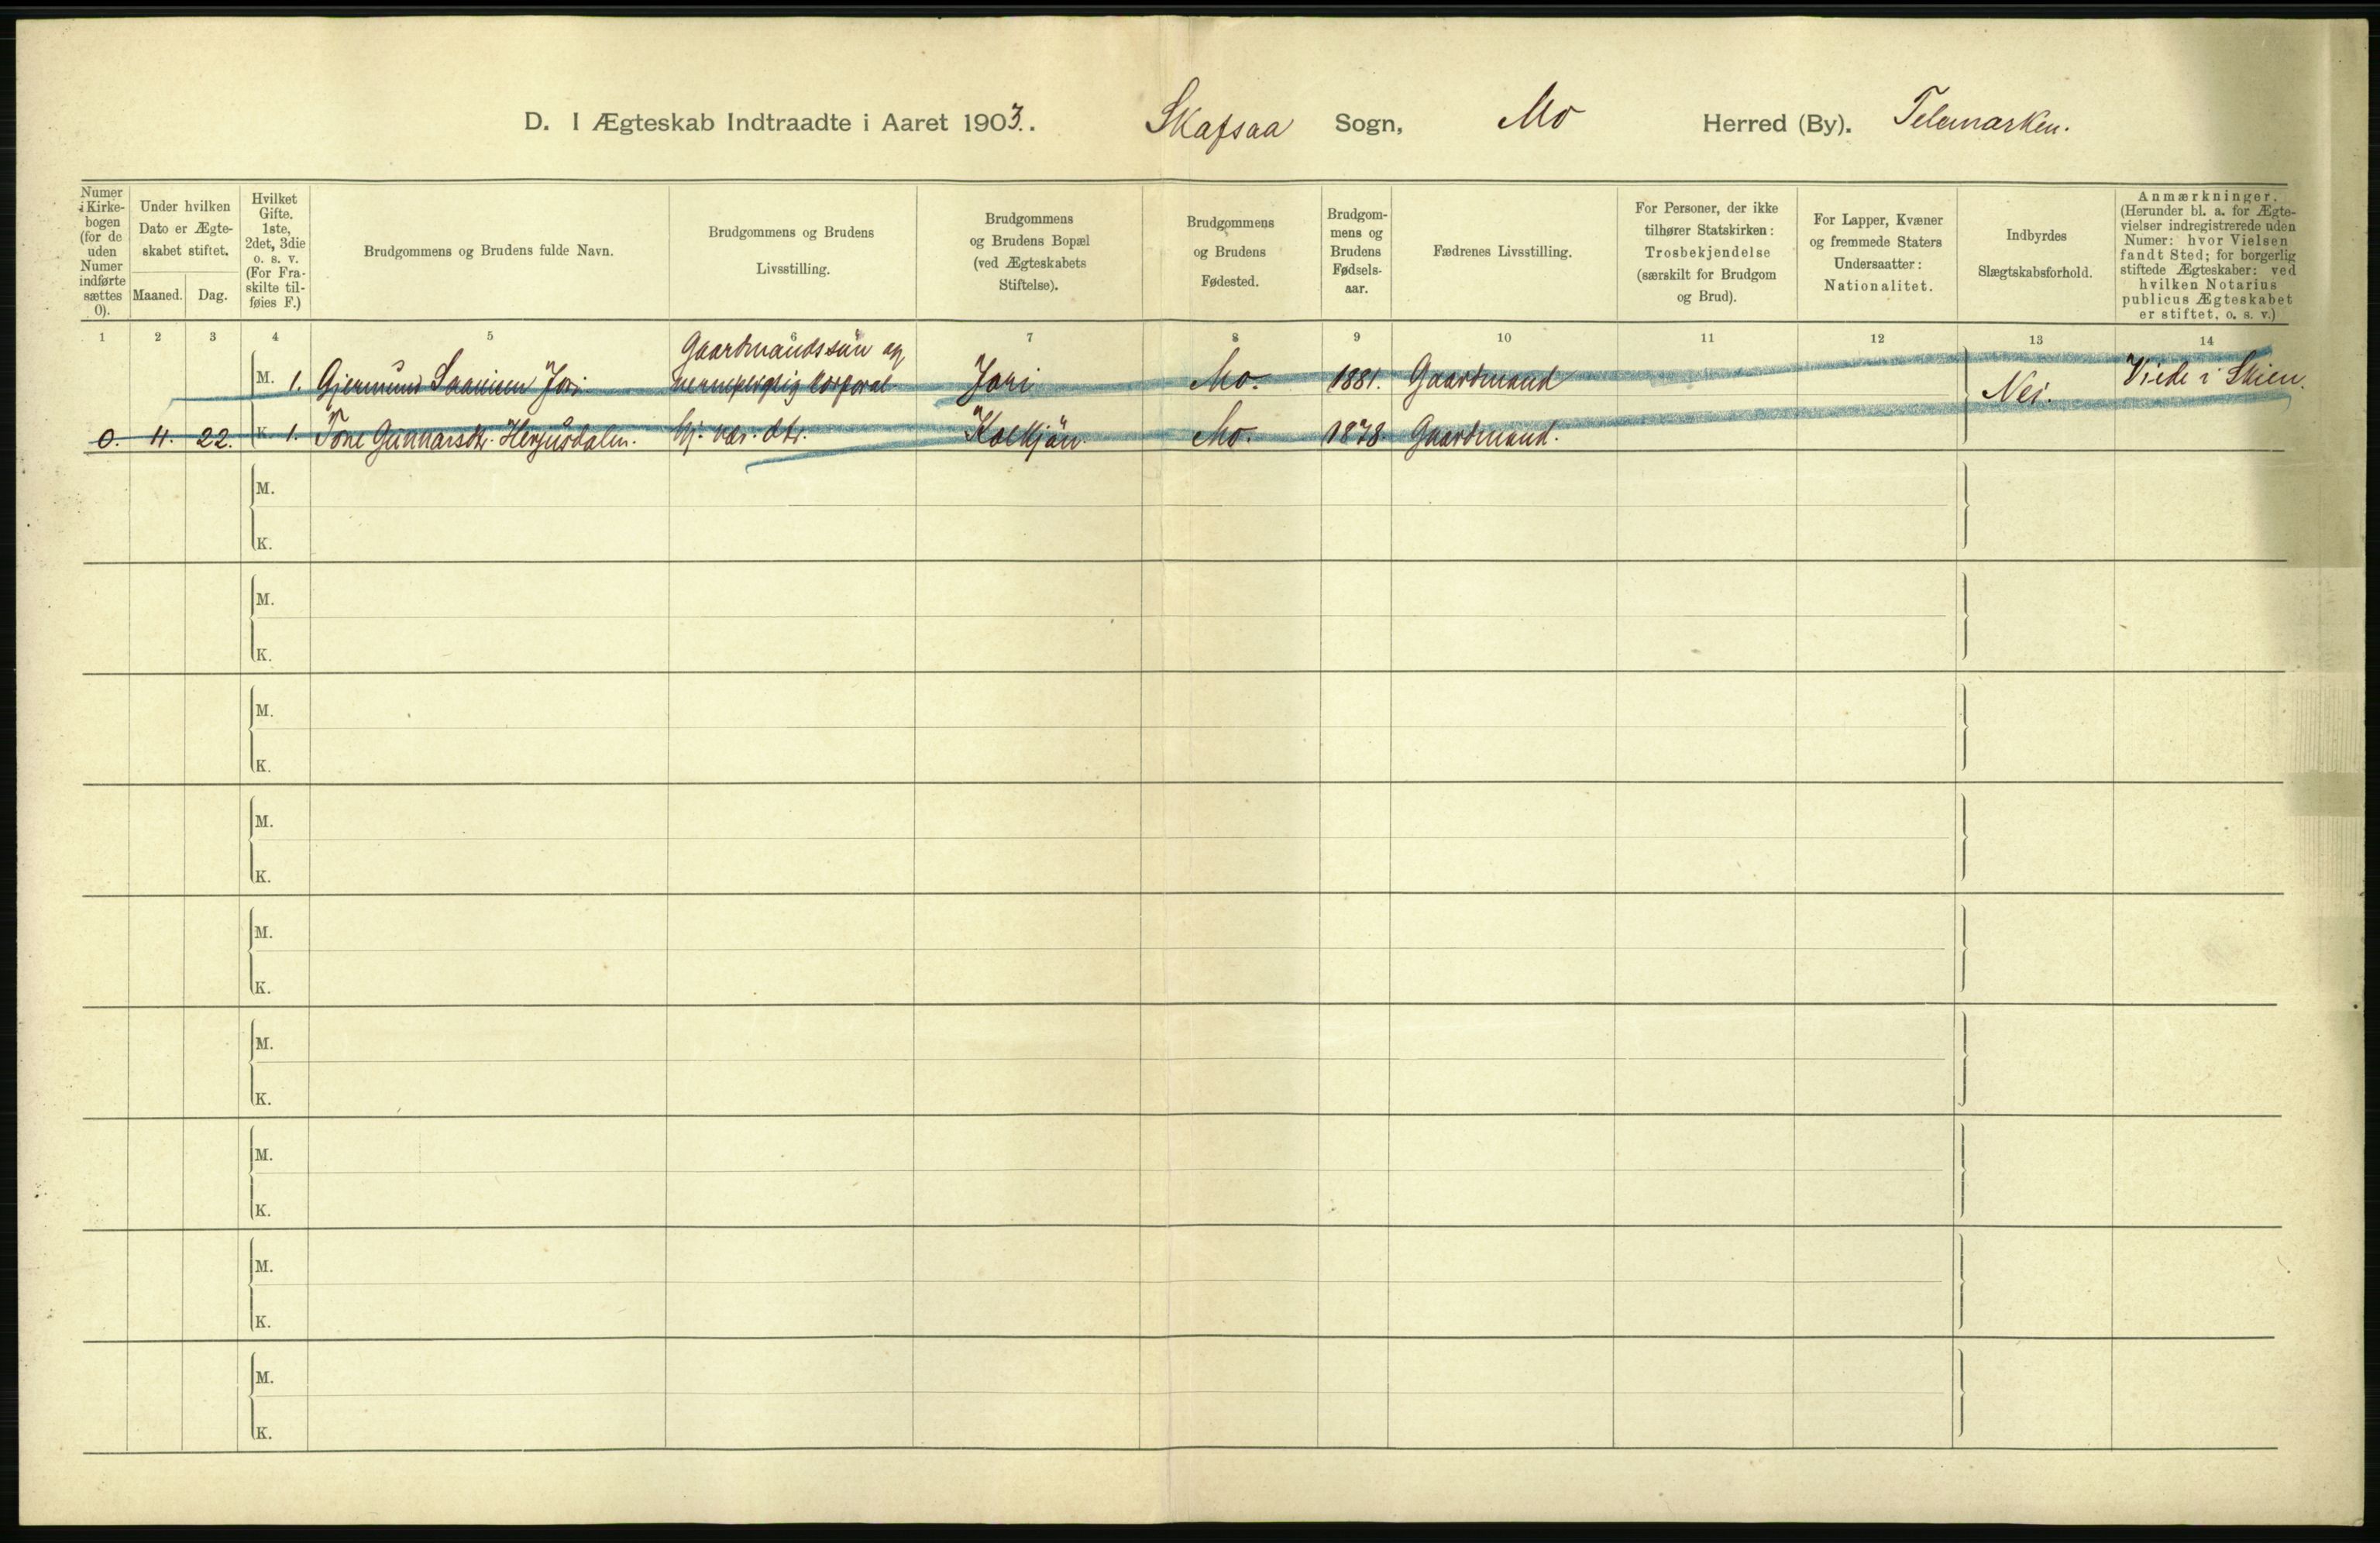 D. I Ægteskab Indtraadte i Aaret 1903. Skafsaa Sogn, Mo Herred (By). Telemarken.
Numer i Kirke-bogen (for de uden Numer indførte sættes 0).
Under hvilken Dato er Ægte-skabet stiftet.
Maaned. Dag.
Hvilket Gifte. 1ste, 2det, 3die o. s. v. (For Fra-skilte til-føies F.)
Brudgommens og Brudens fulde Navn.
Brudgommens og Brudens Livsstilling.
Brudgommens og Brudens Bopæl (ved Ægteskabets Stiftelse).
Brudgommens og Brudens Fødested.
Brudgom-mens og Brudens Fødsels-aar.
Fædrenes Livsstilling.
For Personer, der ikke tilhører Statskirken: Trosbekjendelse (særskilt for Brudgom og Brud).
For Lapper, Kvæner og fremmede Staters Undersaatter: Nationalitet.
Indbyrdes Slægtskabsforhold.
Anmærkninger. (Herunder bl. a. for Ægte-vielser indregistrerede uden Numer: hvor Vielsen fandt Sted; for borgerlig stiftede Ægteskaber: ved hvilken Notarius publicus Ægteskabet er stiftet, o. s. v.)
1 2 3 4 5 6 7 8 9 10 11 12 13 14
Gaardmandssøn og
M. 1. Gjermund Jori korporal Jori Mo. 1881. Gaardmand Nei. Viede i Skien.
0. 4. 22. K. 1. Tone Gunnarsdtr. Herjusdalen. Mo. 1878. Gaardmand.
M.
K.
M.
K.
M.
K.
M.
K.
M.
K.
M.
K.
M.
K.
M.
K.
M.
K.